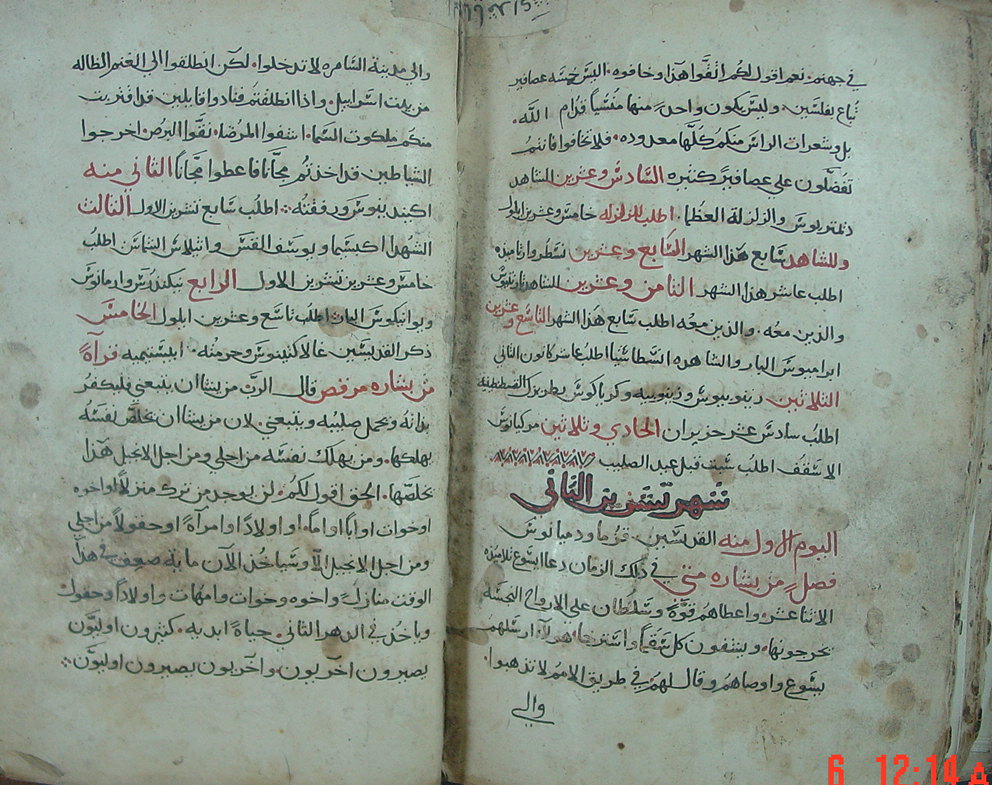 في جهنم. نعم اقول لكم اتقوا هذا وخافوه. اليس خمسه عصافير
تباع بفلسين. وليس يكون واحدٌ منها مُنسًيا قدام الله.
بل وشعرات الراس منكم كلها معدوده. فلا تخافوا فانتم
تفضلون على عصافير كثيره السادس وعشرين للشاهد
ديمتريوس والزلزلة العظما. اطلب للزلزله خامس وعشرين ايلول
وللشاهد سابع هذا الشهر السابع وعشرين نسطر وتلاميذه
اطلب عاشر هذا الشهر الثامن وعشرين للشاهد
والذين معه. والذين معه اطلب سابع هذا الشهر التاسع وعشرين
ابراميوس البار والشاهده انسطاسيا اطلب عاشر كانون الثاني
الثلاثين زينوبيوس وزينوبيه وكرياكوس بطريرك القسطنطينيه
اطلب سادس عشر حزيران الحادي وثلاثين
الاسقف اطلب سبت قبل عيد الصليب
شهر تشرين الثاني
اليوم الاول منه القديسين قزما ودميانوس
فصل من بشاره متى في ذلك الزمان دعا ايشوع تلاميذه
الاثنا عشر واعطاهم قوةً وسلطان على الارواح النجسه
يخرجونها ويشفون كل سقمًا واسترخا. هولآء ارسلهم
يشوع واوصاهم وقال لهم في طريق الامم لا تذهبوا.
والي
والي مدينة السامره لا تدخلوا. لكن انطلقوا الي الغنم الظاله
من بيت اسرايل. واذا انطلقتم فنادوا قايلين قد اقتربت
منكم ملكوت السما. اشفوا المرضا. نقوا البرص. اخرجوا
الشياطين قد اخذتم مجّانًا فاعطوا مجّانًا الثاني منه
اكيندينوس ورفقته اطلب سابع تشرين الاول الثالث
الشهدا اكبسيما ويوسف القس وايثلاس الشماس اطلب
خامس وعشرين تشرين الاول الرابع نيكندرس وارمانوس
ويوانيكوس البار اطلب تاسع وعشرين ايلول الخامس
ذكر القديسين غالاكتينوس وحرمته. ابيستيميه قراءةً
من بشاره مرقص قال الرب من يشا ان يتبعني فليكفر
بذاته ويحمل صليبه ويتبعني. لان من يشا ان يخلص نفسه
يهلكها. ومن يهلك نفسه من اجلي ومن اجل الانجيل هذا
يخلصها. الحق اقول لكم. لن يوجد من ترك منزلاً او اخوه
او خوات او ابًا او امًا. او اولادًا او امرآةً او حقولاً من اجلي
ومن اجل الانجيل الاّ وسياخذ الآن مايه ضعف في هذا
الوقت منازلً واخوه وخوات وامهات واولادًا وحقولا
وياخذ في الدهر الثاني حياةً ابديه. كثيرون اوليّون
يصيرون اخريون واخريون يصيرون اوليّون
6 12:14